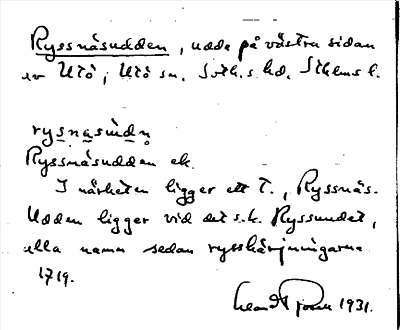 Ryssnäsudden, udde på västra sidan
av Utö, Utö sn. Soth.s hd. Sthlms l.
rysnasúdn̥
Ryssnäsudden ek.
I närheten ligger ett T., Ryssnäs.
Udden ligger vid det s.k. Ryssundet,
alla namn sedan rysshärjningarna
1719.
1931.